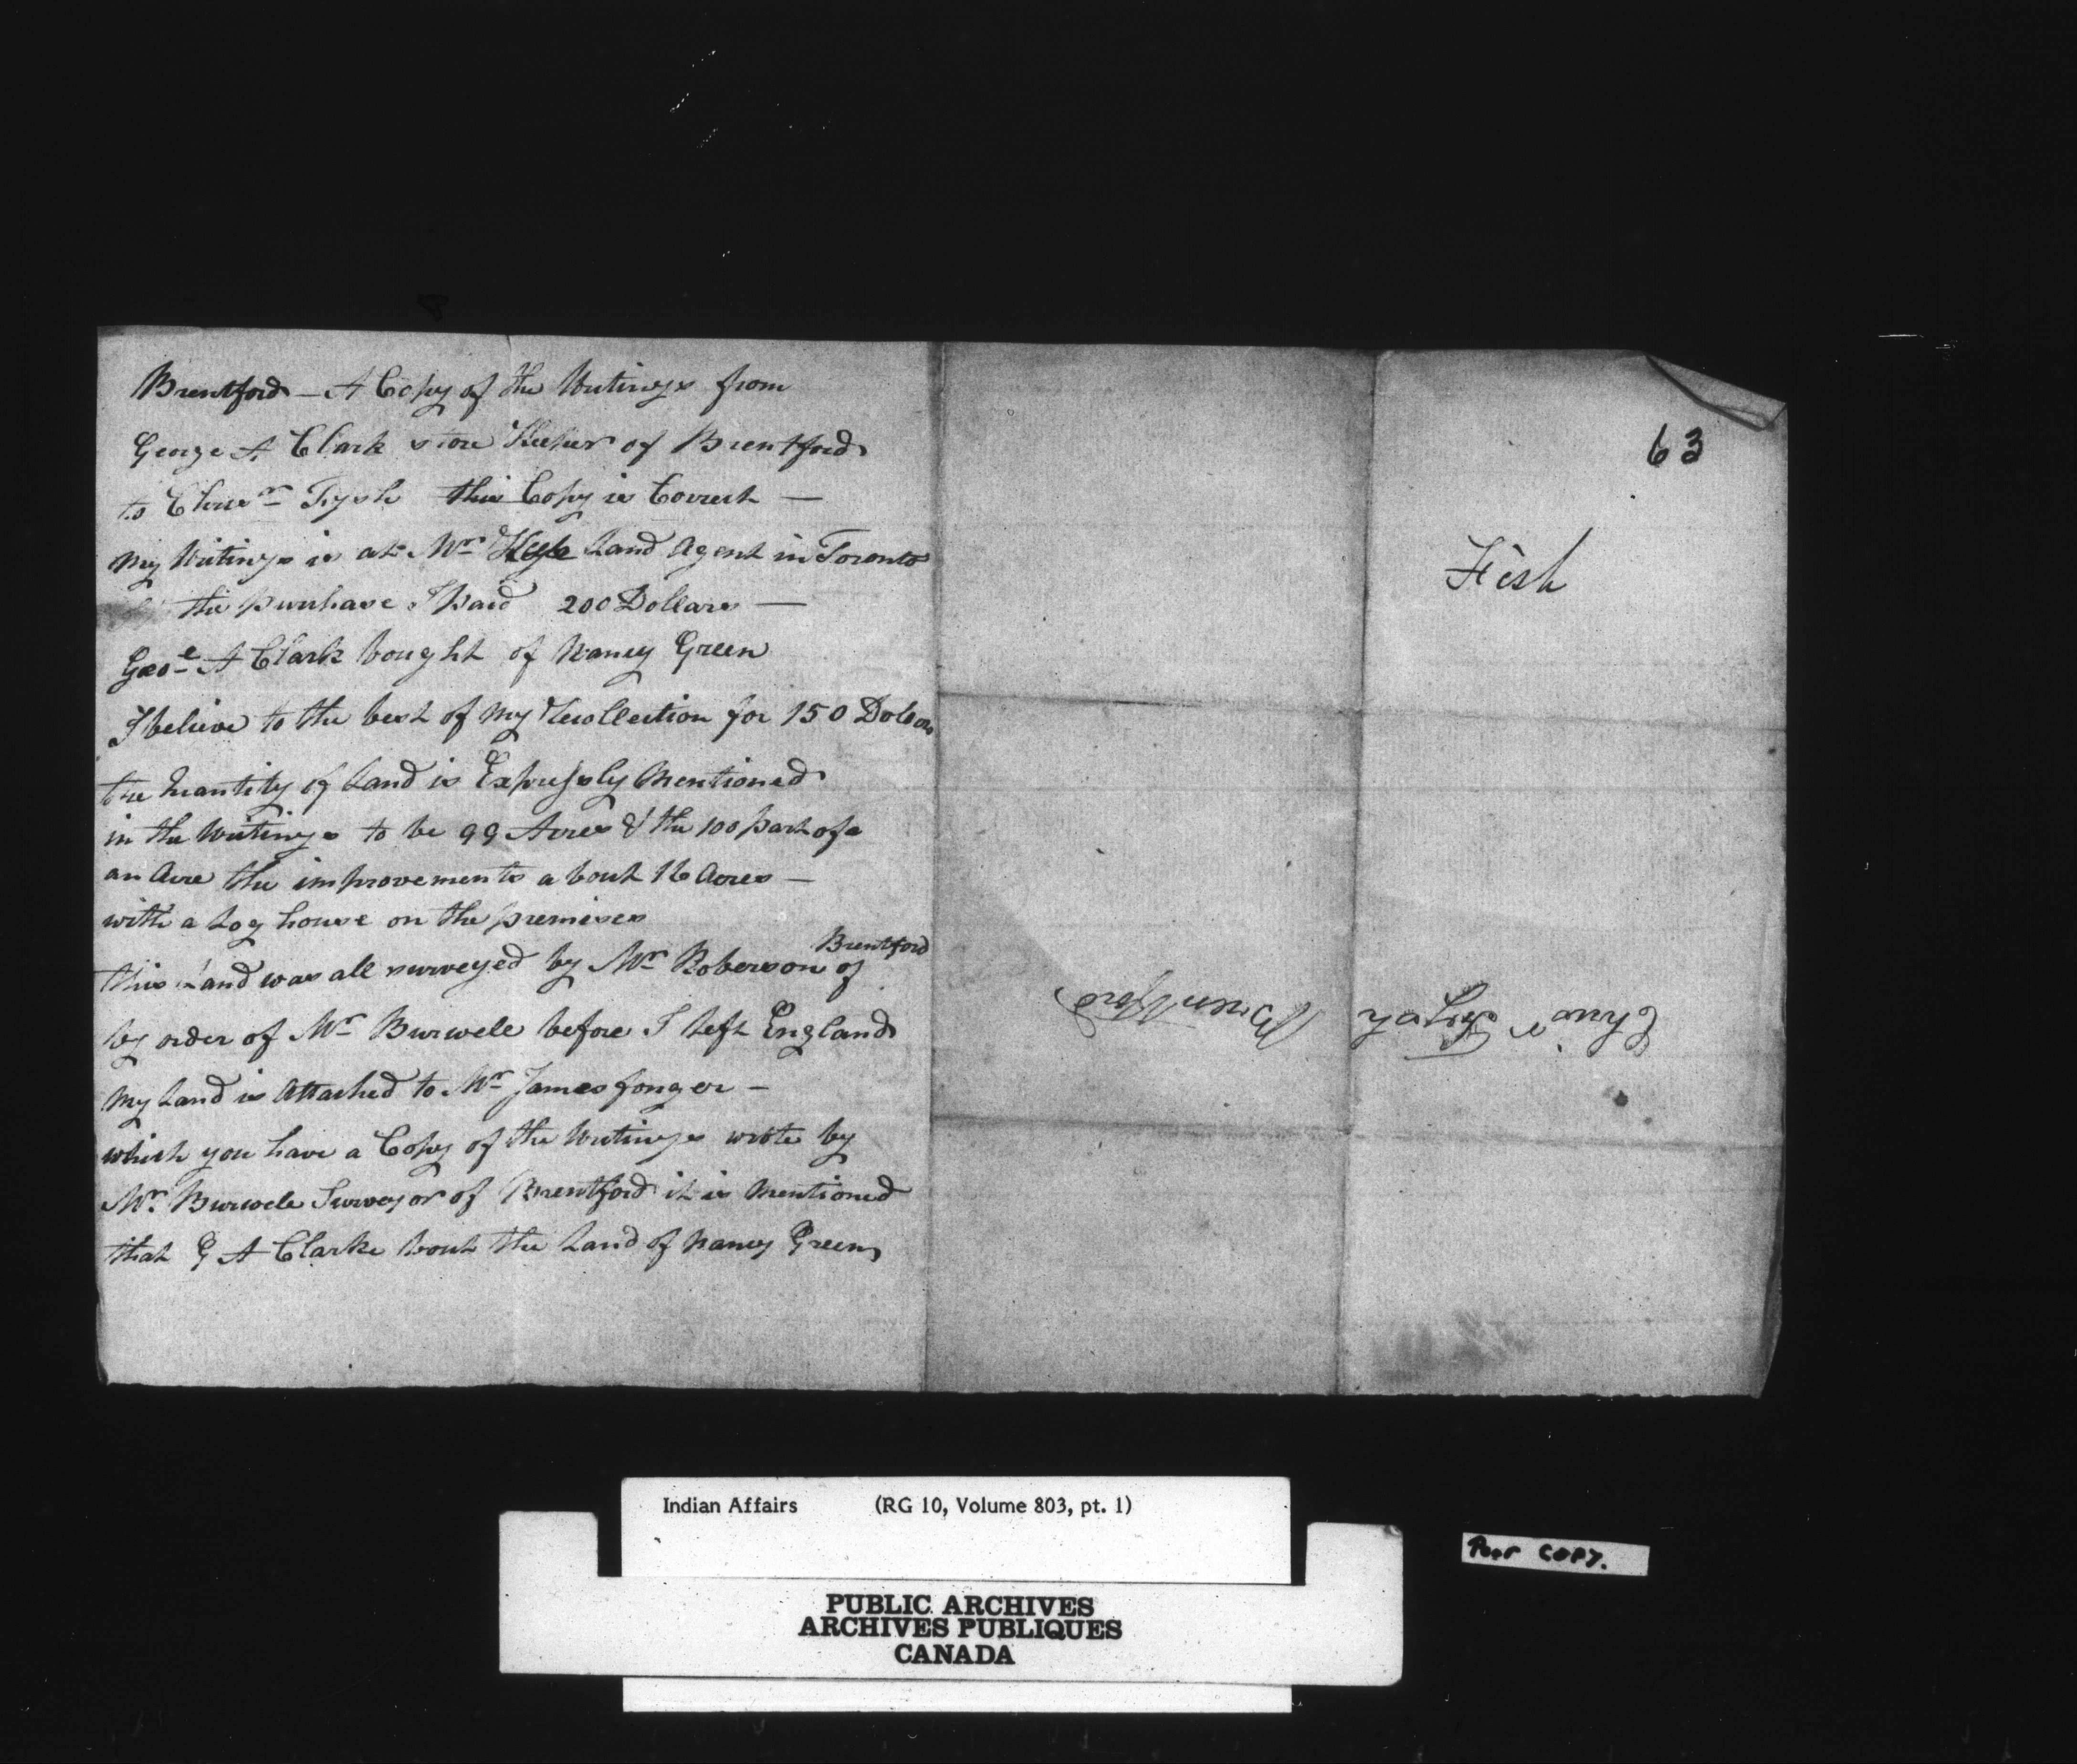 Brentford — A Copy of the Writings from
George A Clark store Keeper of Brentford
to Chrisr. Fysh this Copy is Correct —
my Writings is at Mr. land Agent in Toronto
the purchase I paid 200 Dollars —
Geoe A Clark bought of Nancy Green
I believe to the best of my Recollection for 150 Dollars
the Quantity of Land is Expressly Mentioned
in the Writings to be 99 Acres & the 100 part of a
an Acre the improvements about 16 Acres —
with a Log house on the premises
this Land was all surveyed by Mr Roberson of Brentford
by order of Mr Burwele before I left England
my Land is Attached to Mr James fonger —
which you have a Copy of the Writings wrote by
Mr. Burwele Surveyor of Brentford it is Mentioned
that G A Clarke bout the Land of Nancy Green
63
Fish
Chrisr Fysh
Brentford
Indian Affairs (RG 10, Volume 803, pt. 1)
PUBLIC ARCHIVES
ARCHIVES PUBLIQUES
CANADA
Poor COPY.